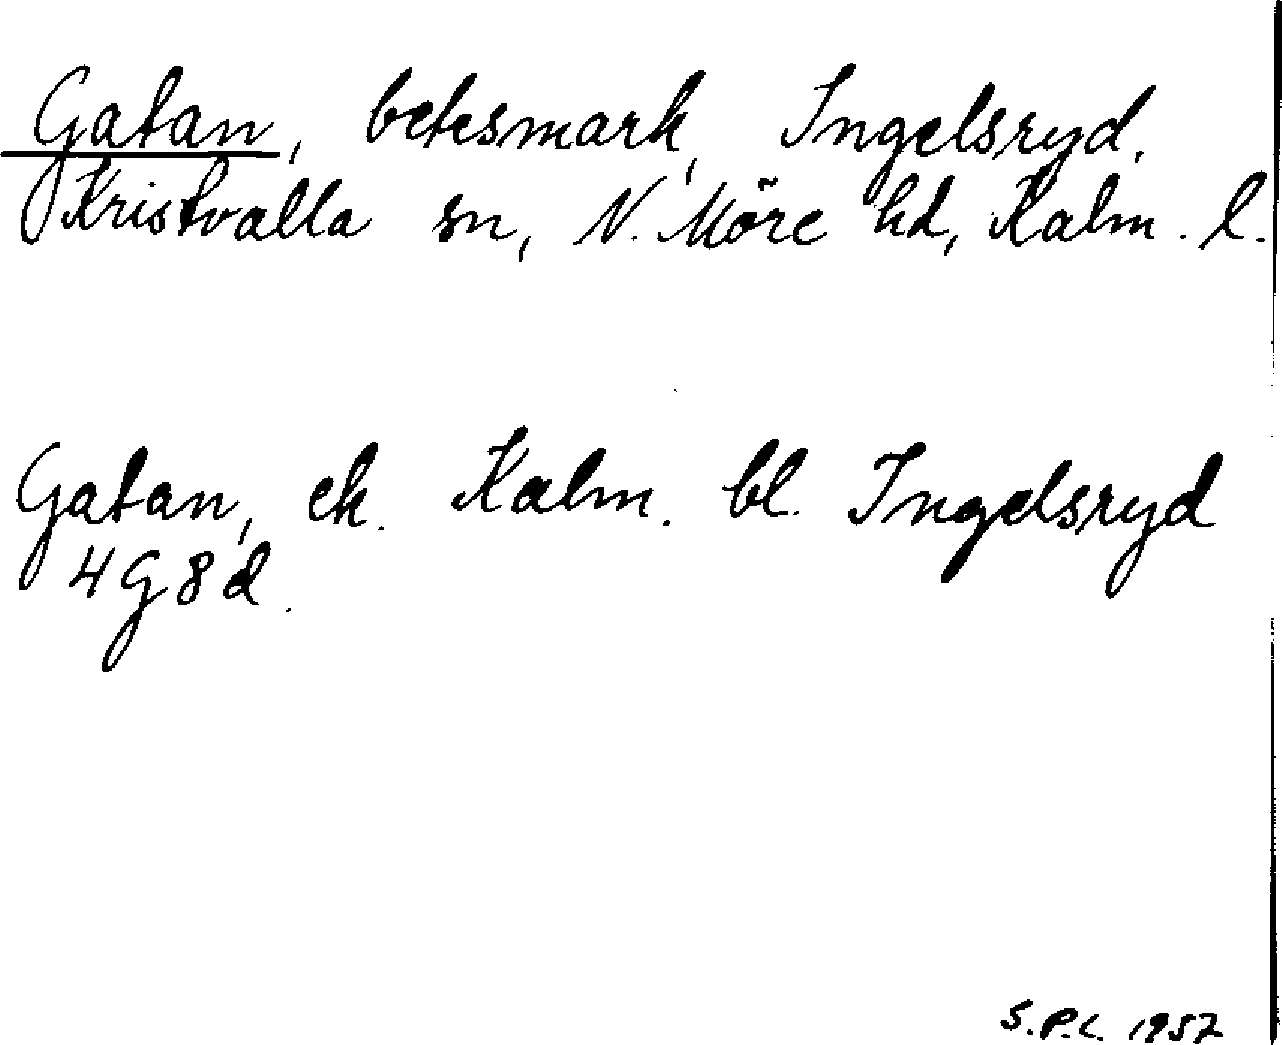 Gatan, betesmark, Ingelsryd.
Kristvalla sn, N. Möre hd, Kalm. l.
Gatan, ek. Kalm. bl. Ingelsryd
4 G 8 d.
S.P.L. 1957